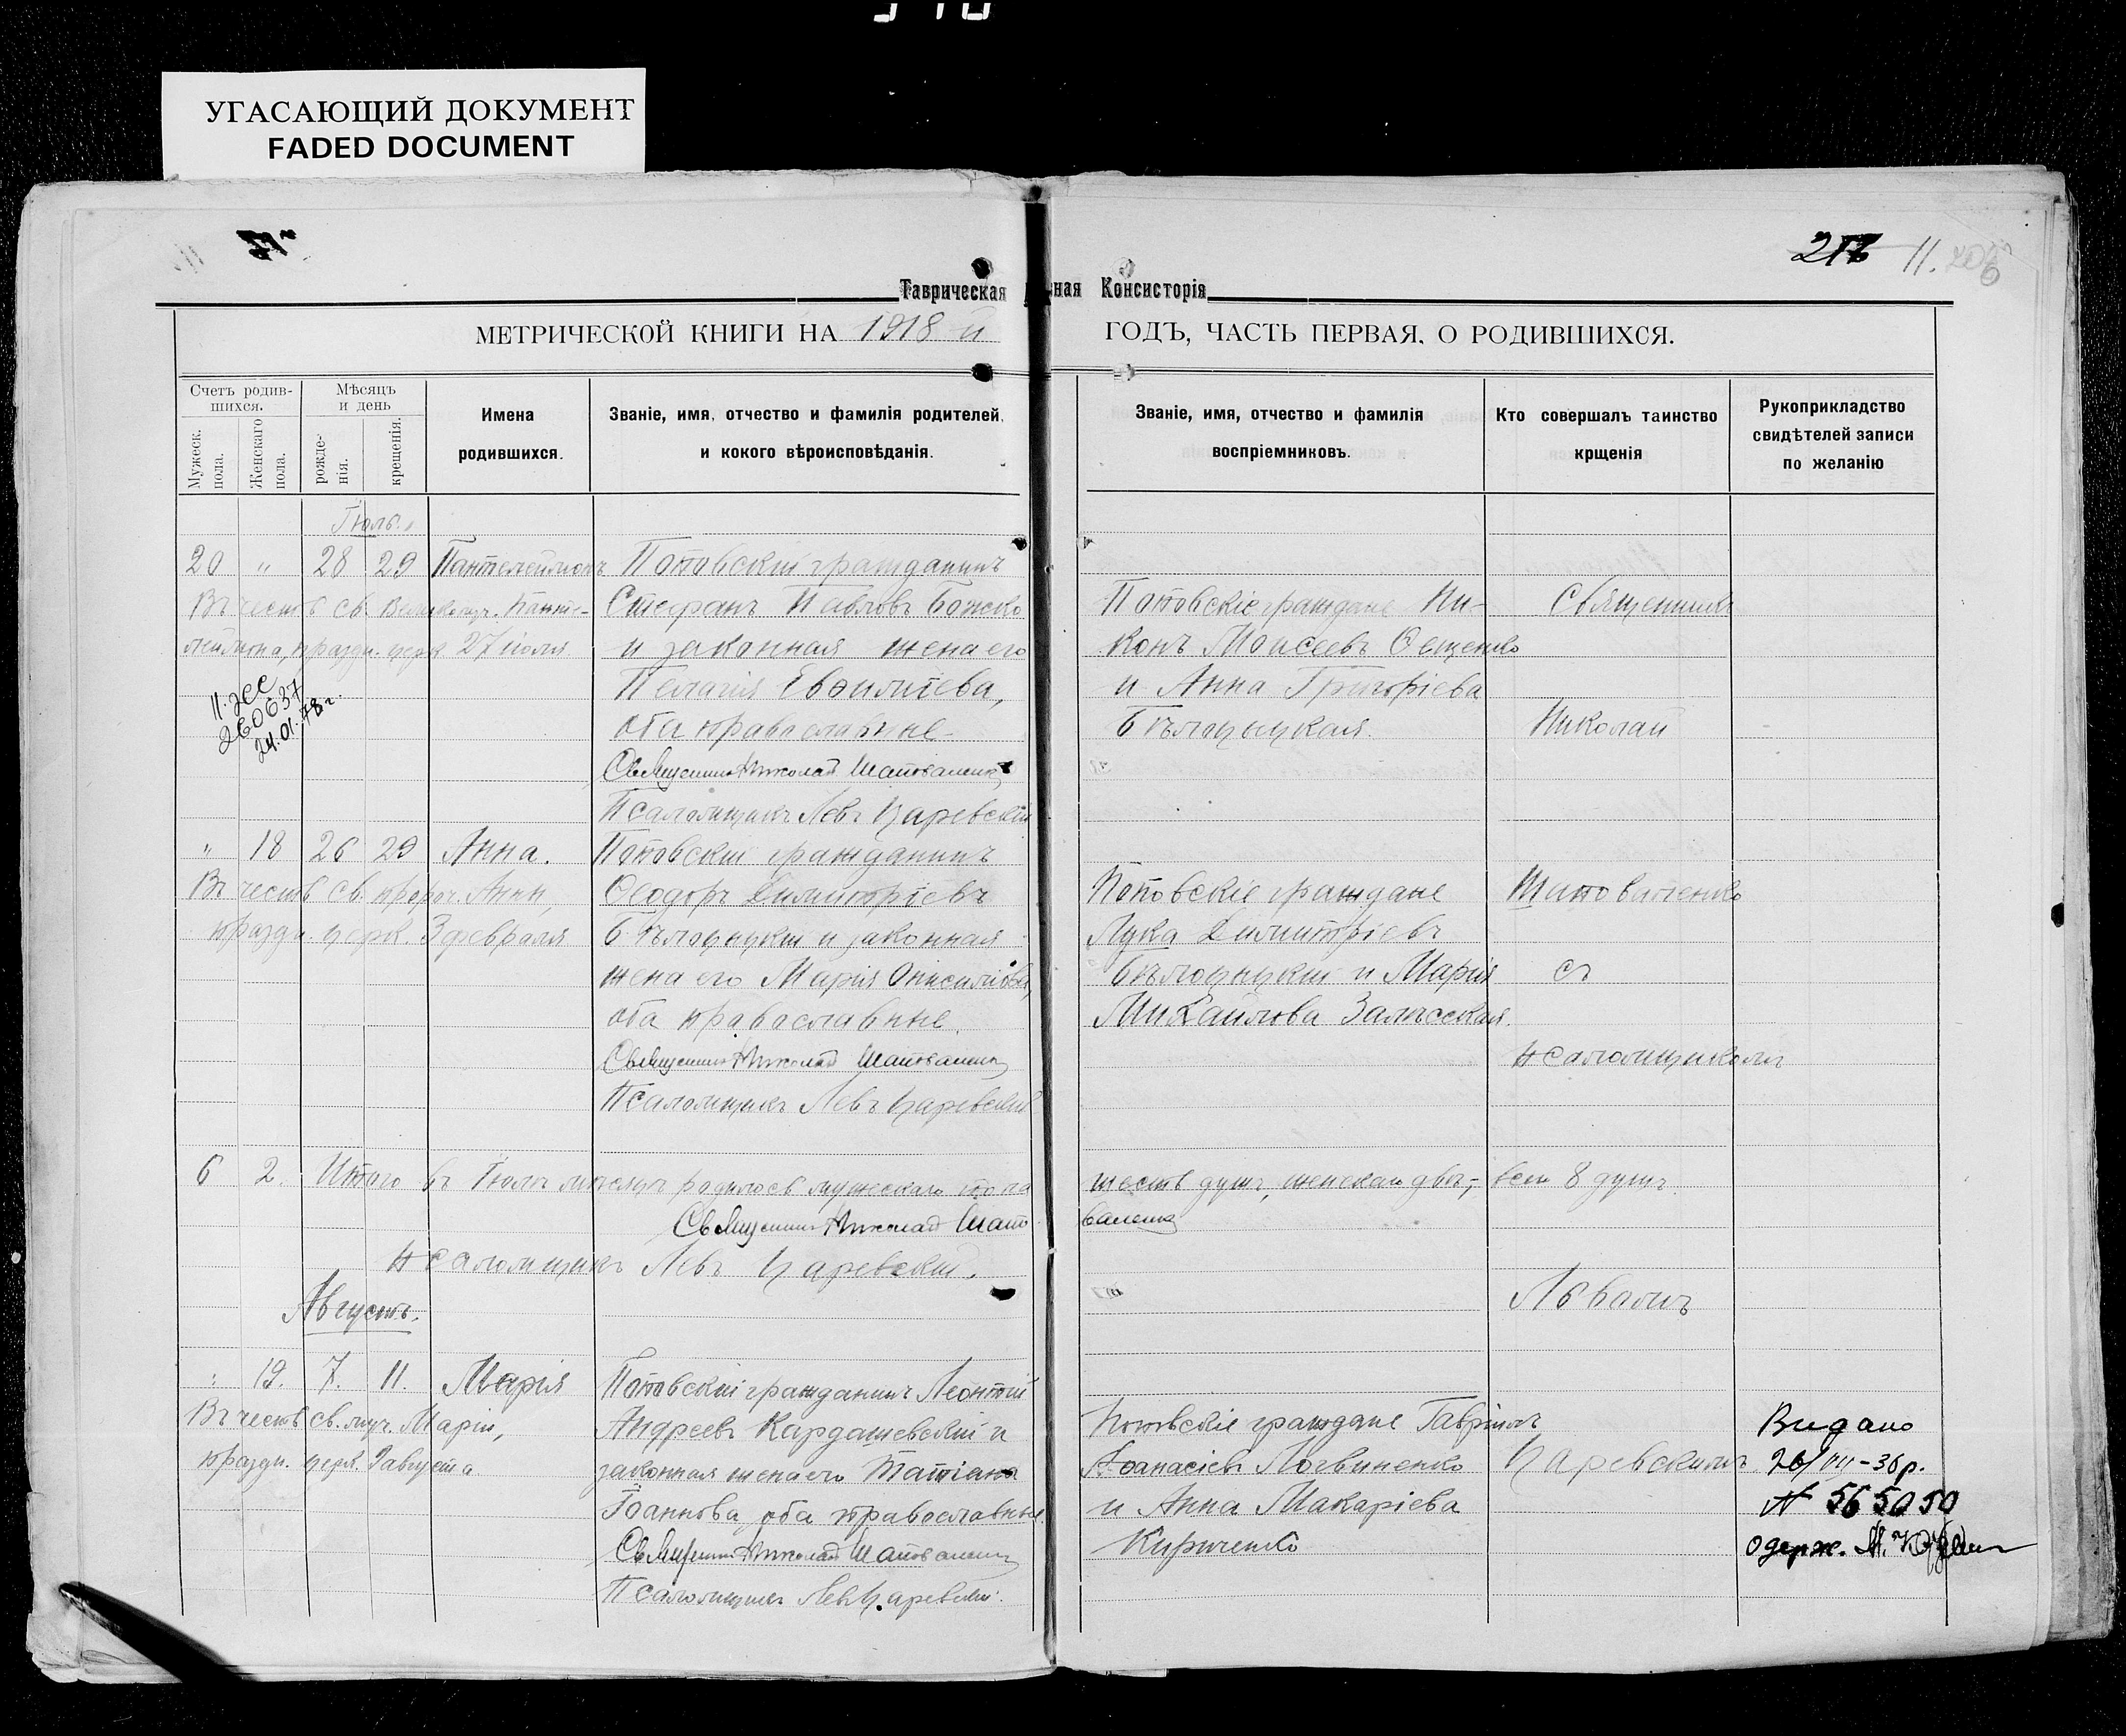 УГАСАЮЩИЙ ДОКУМЕНТ
FADED DOCUMENT
11.
Таврическая ная Консисторія
МЕТРИЧЕСКОЙ КНИГИ НА 1918 й ГОДЪ, ЧАСТЬ ПЕРВАЯ, О РОДИВШИХСЯ.
Счетъ родив-
шихся.
Мужеск. пола.
Женскаго пола.
Мѣсяцъ
и день
рожде-
нія.
крещенія.
Имена
родившихся.
Званіе, имя, отчество и фамилія родителей,
и кокого вѣроисповѣданія.
Званіе, имя, отчество и фамилія
воспріемниковъ.
Кто совершалъ таинство
крщенія
Рукоприкладство
свидѣтелей записи
по желанію
Іюль.
20 " 28 29 Пантелеймонъ
Въ честь св. Великомуч. Панте-
леймона, праздн. церк. 27 іюля
260637
24.01.78г.
Поповскій гражданинъ
Стефанъ Павловъ Божко
и законная жена его
Пелагія Евѳиміева,
оба православные
Священникъ Николай Шаповаленко
Псаломщикъ Левъ Царевскій
Поповскіе граждане Ни-
конъ Моисеевъ Ѳещенко
и Анна Григоріева
Бѣлоцыцкая.
" 18 26 29 Анна.
Въ честь св. пророч. Анны,
праздн. церк. 3 февраля
Поповскій гражданинъ
Ѳеодоръ Димитріевъ
Бѣлоцыцкій и законная
жена его Марія Онисимова,
оба православные.
Священникъ Николай Шаповаленко
Псаломщикъ Левъ Царевскій
Поповскіе граждане
Лука Димитріевъ
Бѣлоцыцкій и Марія
Михайлова Залѣсская.
Священникъ
Николай
Шаповаленко
съ
псаломщикомъ
Львомъ
Царевскимъ
6 2. Итого въ Іюлѣ мѣсяцѣ родилось мужескаго пола шесть душъ, женскаго двѣ,- всего 8 душъ.
Священникъ Николай Шаповаленко
Псаломщикъ Левъ Царевскій.
Августъ.
" 19. 7. 11. Марія
Въ честь св. муч. Маріи,
праздн. церк. 9 августа
Поповскій гражданинъ Леонтій
Андреевъ Кардашевскій и
законная жена его Татіана
Іоаннова, оба православные.
Священникъ Николай Шаповаленко
Псаломщикъ Левъ Царевскій.
Поповскіе граждане Гавріилъ
Аѳанасіевъ Логвиненко
и Анна Макаріева
Кириченко
Видано
26/VII-36р.
№ 565050
одерж.